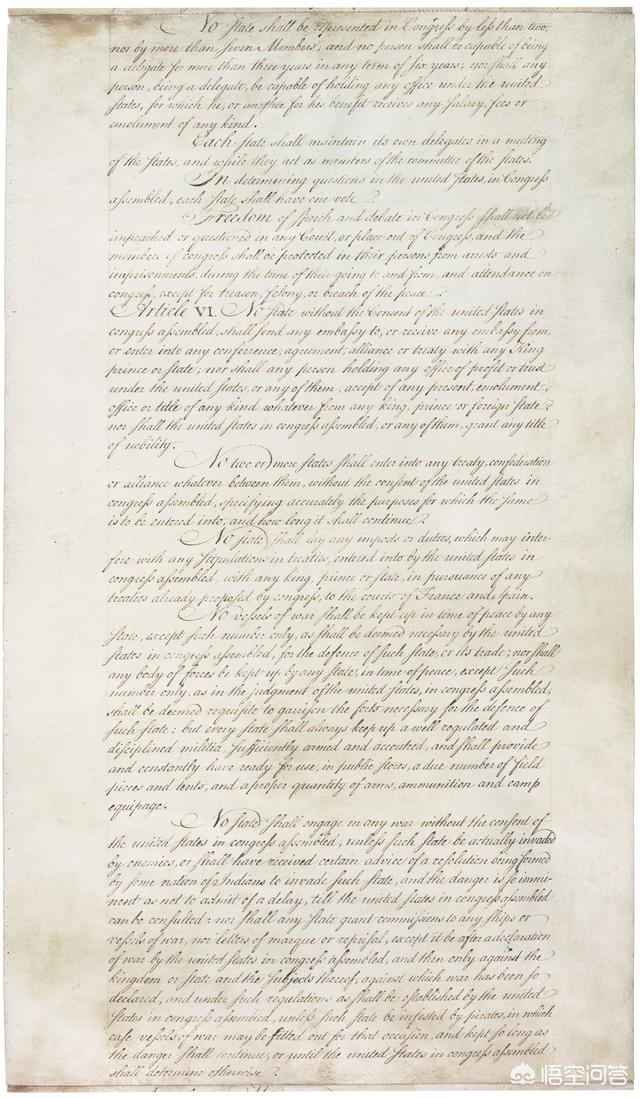 No State shall be represented in Congress by less than two,
nor by more than seven Members; and no person shall be capable of being
a delegate for more than three years in any term of six years; nor shall any
person, being a delegate, be capable of holding any office under the united
states, for which he, or another for his benefit receives any salary, fees or
emolument of any kind.
Each state shall maintain its own delegates in a meeting
of the states, and while they act as members of the committee of the states.
In determining questions in the united states, in Congress
assembled, each state shall have one vote.
Freedom of speech and debate in Congress shall not be
impeached or questioned in any Court, or place out of Congress, and the
members of congress shall be protected in their persons from arrests and
imprisonments, during the time of their going to and from, and attendance on
congress, except for treason, felony, or breach of the peace.
Article VI. No state without the Consent of the united States in
congress assembled, shall send any embassy to, or receive any embassy from,
or enter into any conference, agreement, alliance or treaty with any King
prince or state; nor shall any person holding any office of profit or trust
under the united states, or any of them, accept of any present, emolument,
office or title of any kind whatever from any king, prince or foreign state;
nor shall the united states in congress assembled, or any of them, grant any title
of nobility.
No two or more states shall enter into any treaty, confederation
or alliance whatever between them, without the consent of the united states in
congress assembled, specifying accurately the purposes for which the same
is to be entered into, and how long it shall continue.
No state shall lay any imposts or duties, which may inter-
fere with any stipulations in treaties, entered into by the united states in
congress assembled, with any king, prince or state, in pursuance of any
treaties already proposed by congress, to the courts of France and Spain.
No vessels of war shall be kept up in time of peace by any
state, except such number only, as shall be deemed necessary by the united
states in congress assembled, for the defence of such state, or its trade; nor shall
any body of forces be kept up by any state, in time of peace, except such
number only, as in the judgment of the united states, in congress assembled,
shall be deemed requisite to garrison the forts necessary for the defence of
such state; but every state shall always keep up a well regulated and
disciplined militia, sufficiently armed and accoutred, and shall provide
and constantly have ready for use, in public stores, a due number of field
pieces and tents, and a proper quantity of arms, ammunition and camp
equipage.
No state shall engage in any war without the consent of
the united states in congress assembled, unless such state be actually invaded
by enemies, or shall have received certain advice of a resolution being formed
by some nation of Indians to invade such state, and the danger is so immi-
nent as not to admit of a delay, till the united states in congress assembled
can be consulted: nor shall any state grant commissions to any ships or
vessels of war, nor letters of marque or reprisal, except it be after a declaration
of war by the united states in congress assembled, and then only against the
kingdom or state and the subjects thereof, against which war has been so
declared, and under such regulations as shall be established by the united
states in congress assembled, unless such state be infested by pirates, in which
case vessels of war may be fitted out for that occasion, and kept so long as
the danger shall continue, or until the united states in congress assembled
shall determine otherwise.
悟空问答